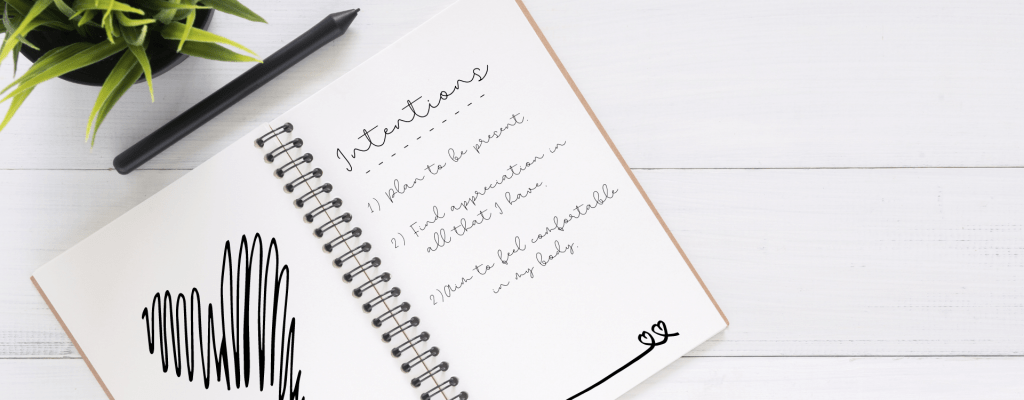 Intentions
1) Plan to be present.
2) Find appreciation in
all that I have.
2) Aim to feel comfortable
in my body.